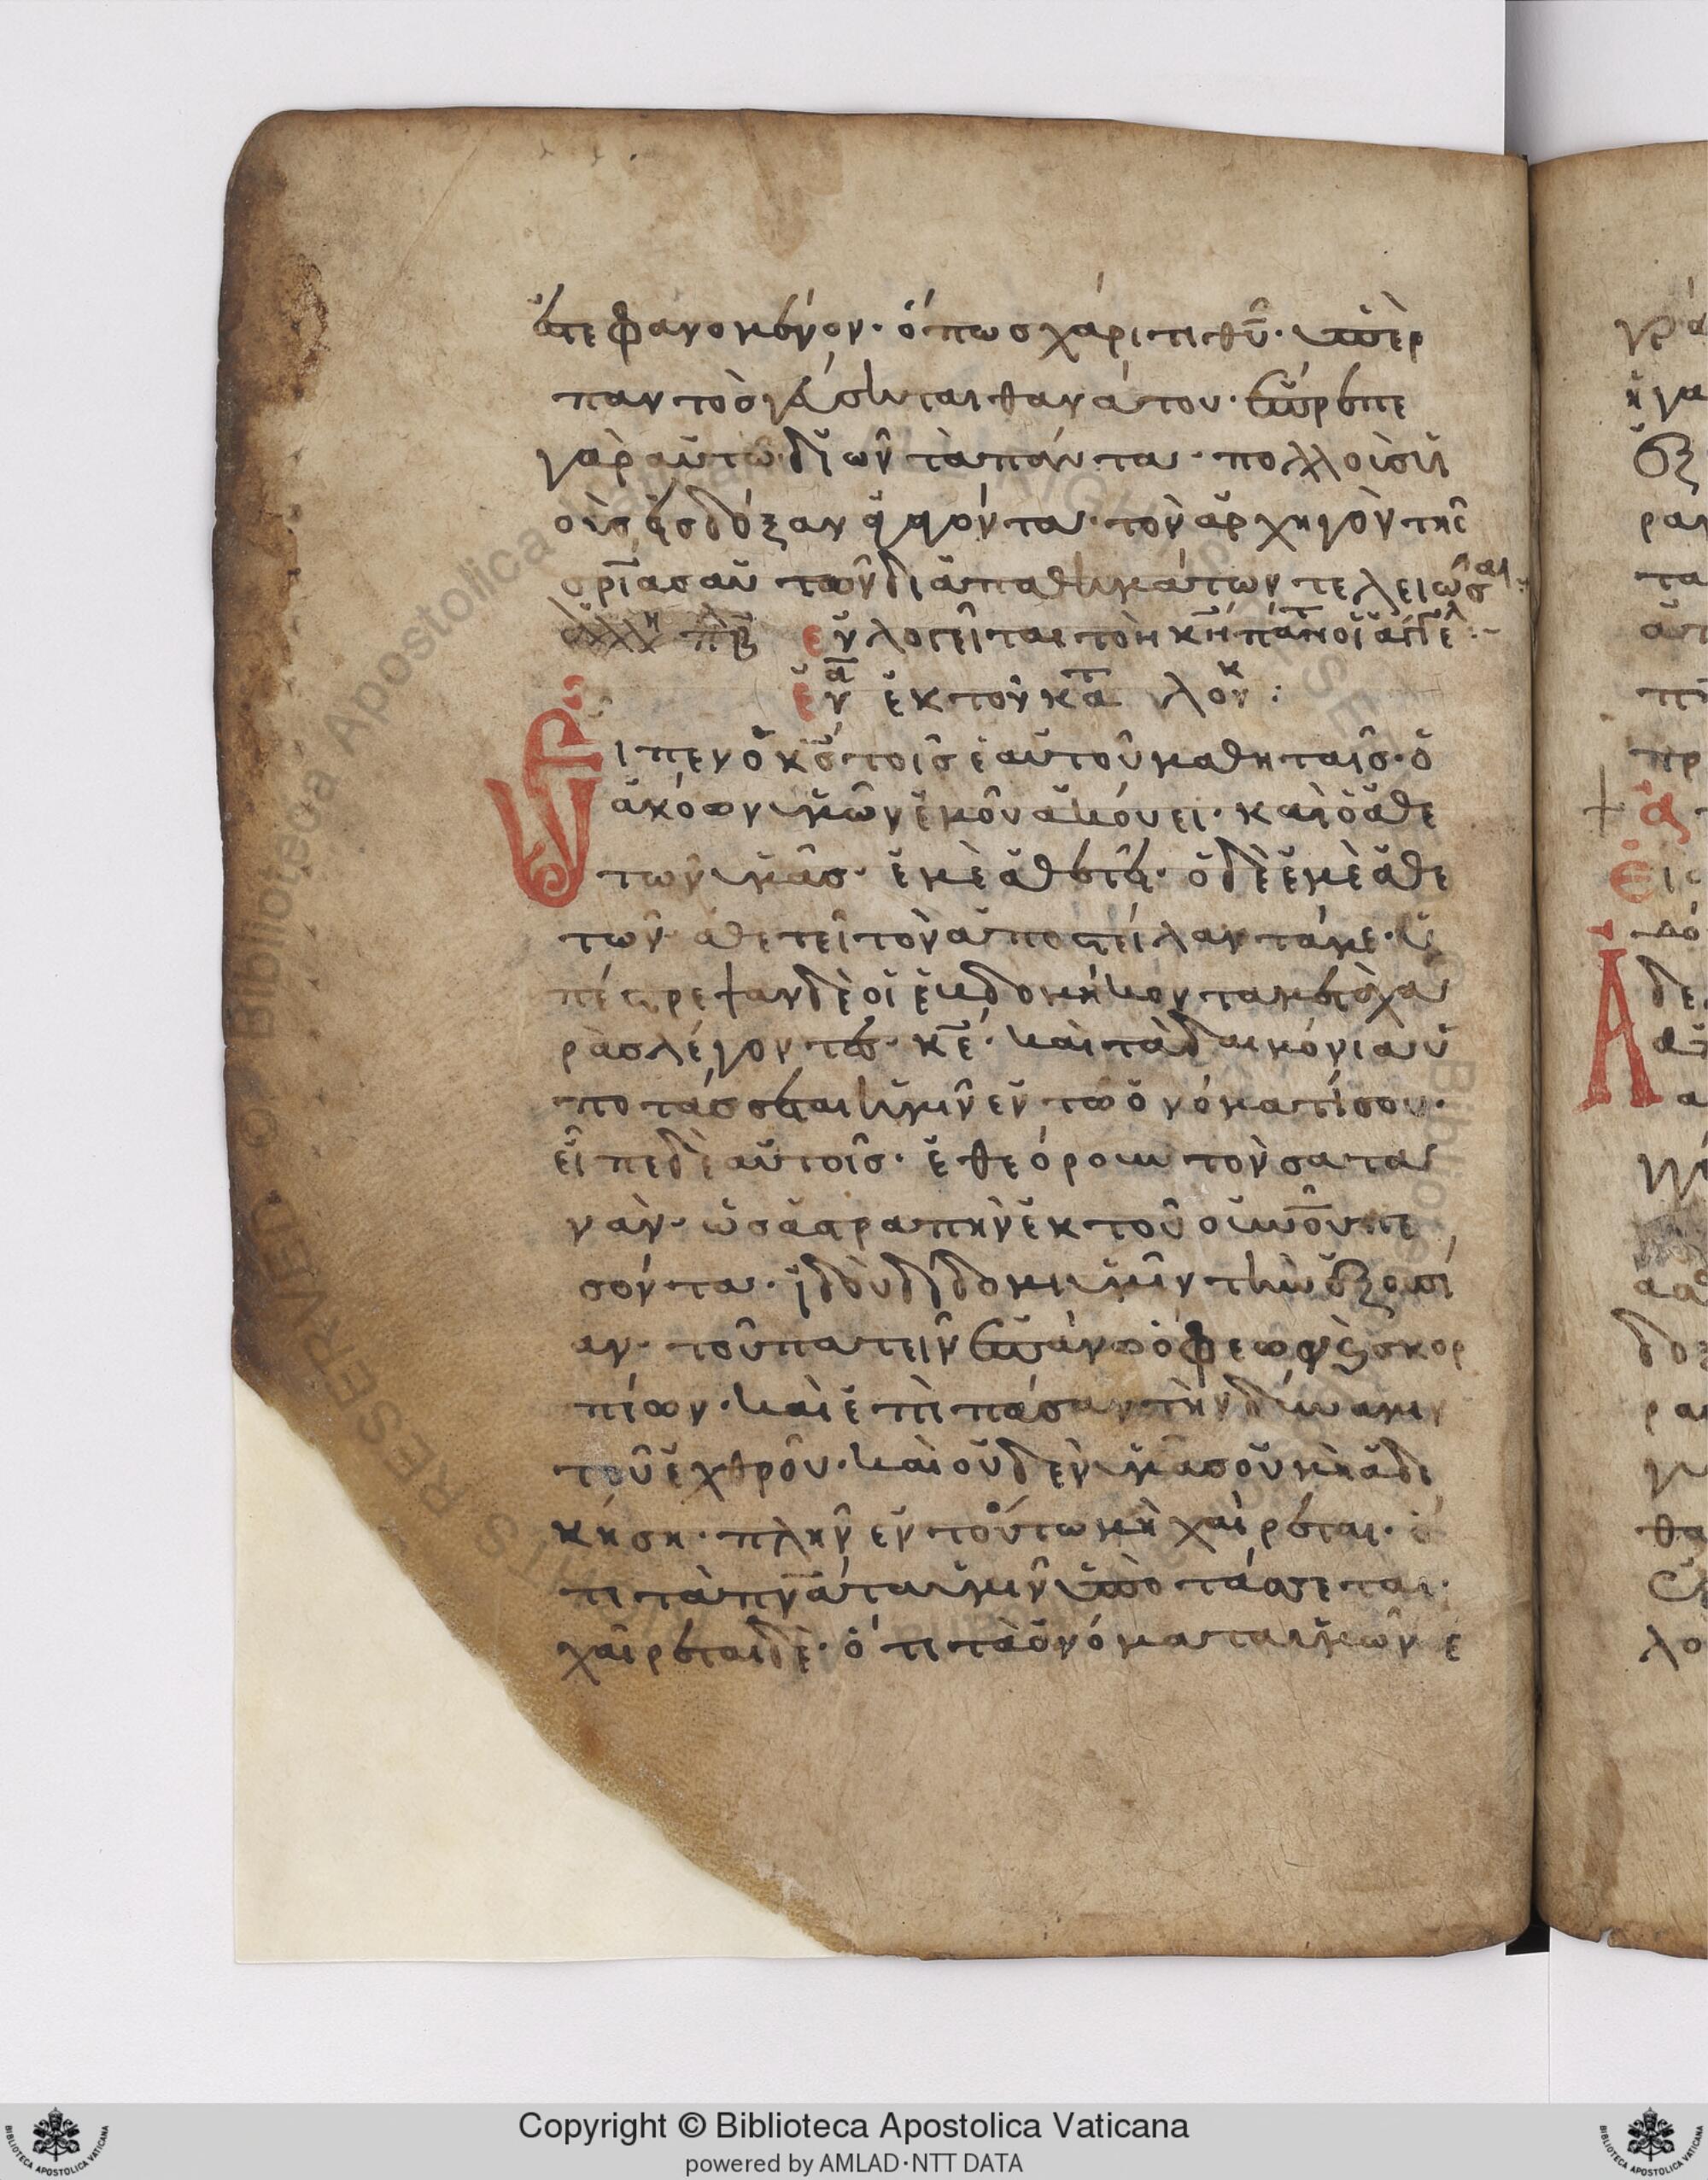 ἐστεφανομένον· ὅπως χάριτι θῦ· ὑπὲρ
παντὸς γεύσηται θανάτου· ἔπρεπε
γὰρ αὐτῶ· δι ὧν τὰ πάντα· πολλοὶς υἱ
οὺς εἰς δόξαν ἀγαγόντα· τὸν ἀρχηγὸν τῆς
σρίας αὐτῶν διὰ παθημάτων τελειῶσαι:
εὐλογεῖται τὸν κν πάντ οἱ ἀγγελ:~
εὐα ἐκ τοῦ κατ λουκ:
Εἶπεν ὁ κς τοῖς ἑαυτοῦ μαθηταῖς· ὁ
ἀκόων ὑμῶν ἐμοῦ ἀκούει· καὶ ὁ ἀθε
τῶν ὑμᾶς· ἐμὲ ἀθετεῖ· ὁ δὲ ἐμὲ ἀθε
τῶν· ἀθετεῖ τὸν ἀποστείλαντά με· ὑ
πέστρεψαν δὲ οἱ ἑυδομήκοντα μετὰ χα
ρὰς λέγοντες· κε· καὶ τὰ δαιμόνια ὑ
ποτάσσεται ἡμῖν ἐν τῶ ὀνόματί σου·
εἶπε δὲ αὐτοῖς· ἐθεόρουν τὸν σατα
νὰν· ὡς ἀστραπὴν ἐκ τοῦ οὐνοῦ πε
σόντα· ἰδοὺ δίδομι ὑμῖν τὴν ἐξουσί
αν· τοῦ πατεῖν ἐπάνω ὄφεων καὶ σκορ
πίων· καὶ ἐπὶ πάσαν τὴν δύναμιν
τοῦ ἐχθροῦ· καὶ οὐδὲν ὑμᾶς οὐ μὴ ἀδι
κήση· πλὴν ἐν τούτω μὴ χαίρεται· ὅ
τι τὰ πνάτα ὑμῖν ὑποτάσσεται·
χαῖρεται δὲ· ὅτι τὰ ὀνόματα ὑμῶν ἐ
Copyright © Biblioteca Apostolica Vaticana
powered by AMLAD·NTT DATA